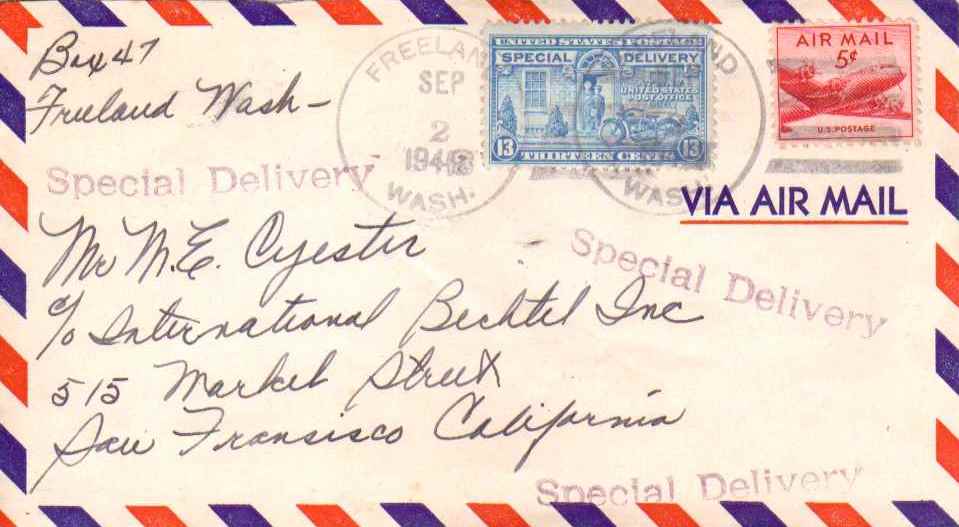 Box 47
Freeland Wash-
FREELAND
SEP
2
1948
WASH.
UNITED STATES POSTAGE
SPECIAL DELIVERY
UNITED STATES
POST OFFICE
13 THIRTEEN CENTS 13
WASH.
AIR MAIL
5¢
U.S. POSTAGE
VIA AIR MAIL
Special Delivery
Mr M.E. Cyester
c/o International Bechtel Inc
515 Market Street
San Fransisco California
Special Delivery
Special Delivery